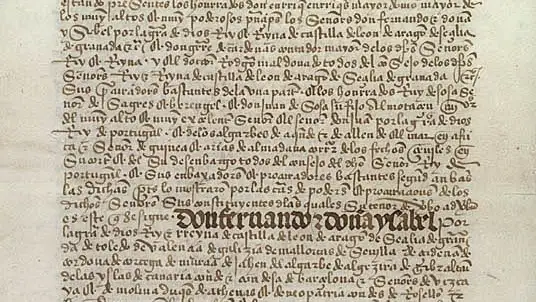 estando presentes los honrrados don enrriq̃ enrriques mayordomo mayor de
los muy altos & muy poderosos prinçipes los Señores don fernando & doña
ysabel por la graçia de dios Rey & Reyna de castilla de leon de aragon de seçilia
de granada & & don gutierre de cardenas contador mayor de los dichos Señores
Rey & Reyna & el doctor Rodrigo maldonado todos del consejo de los dichos
Señores Rey & Reyna de castilla de leon de aragon de Seçilia de granada &
Sus procuradores bastantes de la una parte & los honrrados Ruy de sosa Se
ñor de Sagres & berenguel & don juan de Sosa su fijo Almotaçen mayor
del muy alto & muy exçelente Señor el Señor don juan por la graçia de dios
Rey de portugal & de los algarbes de aquende & de allende el mar en afri
ca & Señor de guinea & arias de almadana corregidor de los fechos çeuiles en
Su corte & del Su desenbargo todos del consejo del dicho Señor Rey de
portugal & Sus enbaxadores & procuradores bastantes segund anbas
las dichas partes lo mostraron por las cartas de poderes & procuraçiones de los
dichos Señores Sus constituyentes de las quales Su tenor de verbo ad verbum
es este que se sigue don fernando & doña ysabel Por
la graçia de dios Rey & Reyna de castilla de leon de aragon de Seçilia de grana
da de toledo de valençia de galizia de mallorcas de Seuilla de çerdeña de
cordoua de corçega de murçia de jahen del algarbe de algezira de gibraltar
de las yslas de canaria conde & condesa de barçelona & Señores de vizca
ya & de molina duques de athenas & de neopatria condes de Rosellon &